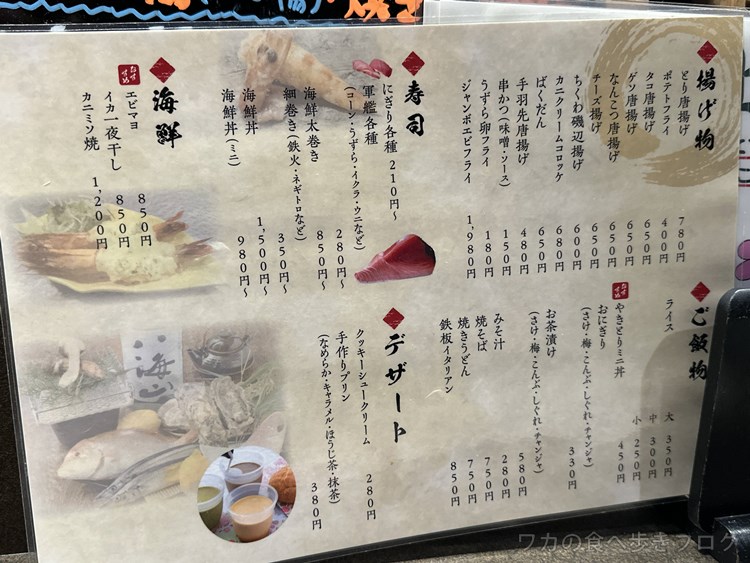 揚げ物
とり唐揚げ 780円
ポテトフライ 400円
タコ唐揚げ 650円
ゲソ唐揚げ 650円
なんこつ唐揚げ 650円
チーズ揚げ 650円
ちくわ磯辺揚げ 600円
カニクリームコロッケ 680円
ばくだん 650円
手羽先唐揚げ 480円
串かつ(味噌・ソース) 150円
うずら卵フライ 180円
ジャンボエビフライ 1,980円
寿司
にぎり各種 210円～
軍艦各種
(コーン・うずら・イクラ・ウニなど) 280円～
海鮮太巻き 850円～
細巻き(鉄火・ネギトロなど) 350円～
海鮮丼 1,500円～
海鮮丼(ミニ) 980円～
海鮮
おすすめ
エビマヨ 850円
イカ一夜干し 850円
カニミソ焼 1,200円
ご飯物
ライス 大 350円
中 300円
小 250円
おすすめ
やきとりミニ丼 450円
おにぎり
(さけ・梅・こんぶ・しぐれ・チャンジャ) 330円
お茶漬け
(さけ・梅・こんぶ・しぐれ・チャンジャ) 580円
みそ汁 280円
焼そば 750円
焼きうどん 750円
鉄板イタリアン 850円
デザート
クッキーシュークリーム 280円
手作りプリン
(なめらか・キャラメル・ほうじ茶・抹茶) 380円
ワカの食べ歩きブログ